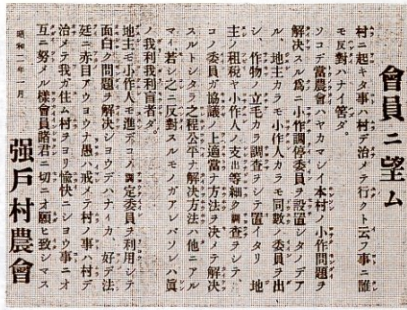 會員ニ望ム
村ニ起キタ事ハ村デ治メテ行クト云フ事ニ誰
モ反對ハナイ筈ダ。
ソコデ當農會ハヤカマシイ本村ノ小作問題ヲ
解決スル爲ニ小作調停委員ヲ設置シタノデア
ル、地主カラモ小作人カラモ同數ノ委員ヲ出
シ、作物ノ立毛カラ調査ヲシテ置イタリ地
主ノ租税ヤ小作人ノ支出等細ク調査ヲシテ、
コノ委員ガ協議ノ上適當ナ方法ヲ決メテ解決
スルトシタラ之程公平ナ解決方法ハ他ニアル
マイ若シ之ニ反對スルモノガアレバソレハ眞
ノ我利我利盲者ダ。
地主モ小作人モ進デコノ調定委員ヲ利用シテ
面白ク問題ヲ解決シヨウデハナイカ、好デ法
廷ニ赤目アウヨウナ愚ハ戒メテ村ノ事ハ村デ
治メテ我ガ住ム村ヲヨリ愉快ニシヨウ事ニオ
互ニ努メル樣會員諸君ニ切ニオ願ヒ致シマス
昭和二年一月
强戶村農會